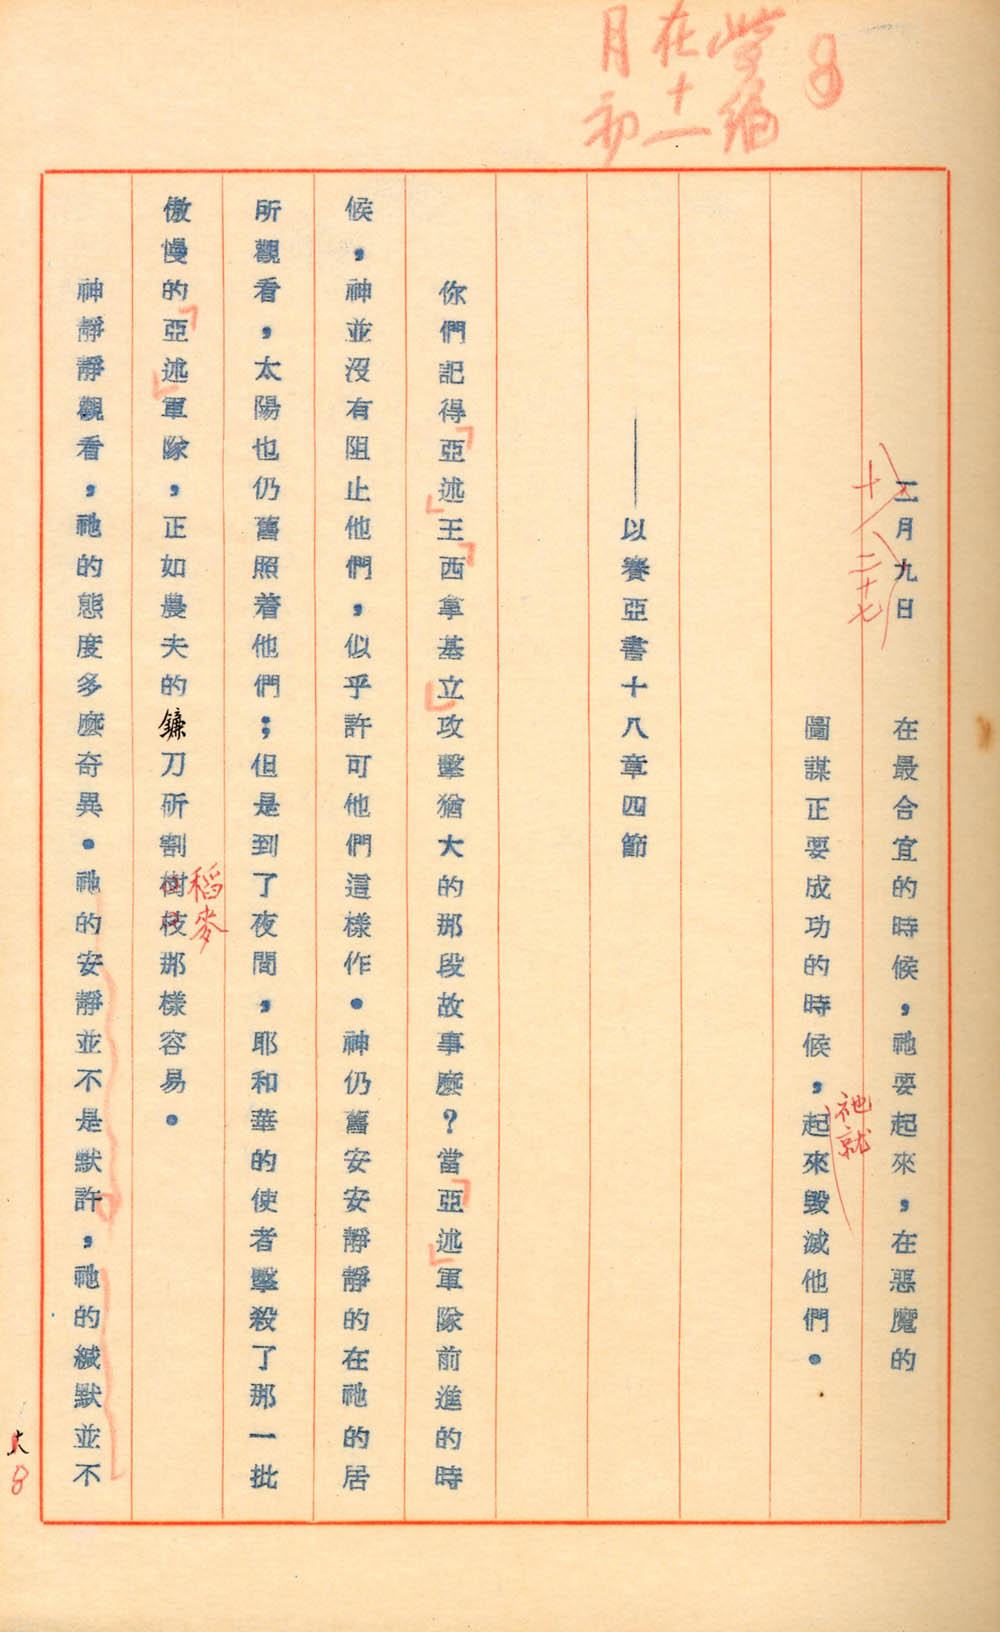 8
當編
在十一
月初
二月九日 在最合宜的時候，祂要起來，在惡魔的
十 二十七
圖謀正要成功的時候，起來毀滅他們。
祂就
——以賽亞書十八章四節
你們記得亞述王西拿基立攻擊猶大的那段故事麼？當亞述軍隊前進的時
候，神並沒有阻止他們，似乎許可他們這樣作。神仍舊安安靜靜的在祂的居
所觀看，太陽也仍舊照着他們；但是到了夜間，耶和華的使者擊殺了那一批
傲慢的亞述軍隊，正如農夫的鐮刀斫割樹枝那樣容易。
稻麥
神靜靜觀看，祂的態度多麼奇異。祂的安靜並不是默許，祂的緘默並不
8